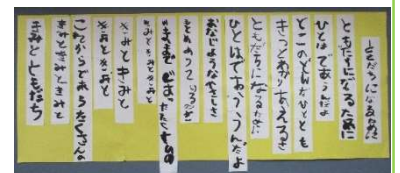 ともだちになるために
ともだちになるために
ひとはであうんだよ
どこのどんなひととも
きっとわかりあえるさ
ともだちになるために
ひとはであうんだよ
おなじようなやさしさ
もとめあっているのさ
いままで
きみときみと
きみときみと
これからであうたくさんの
きみときみときみと
きみとともだち